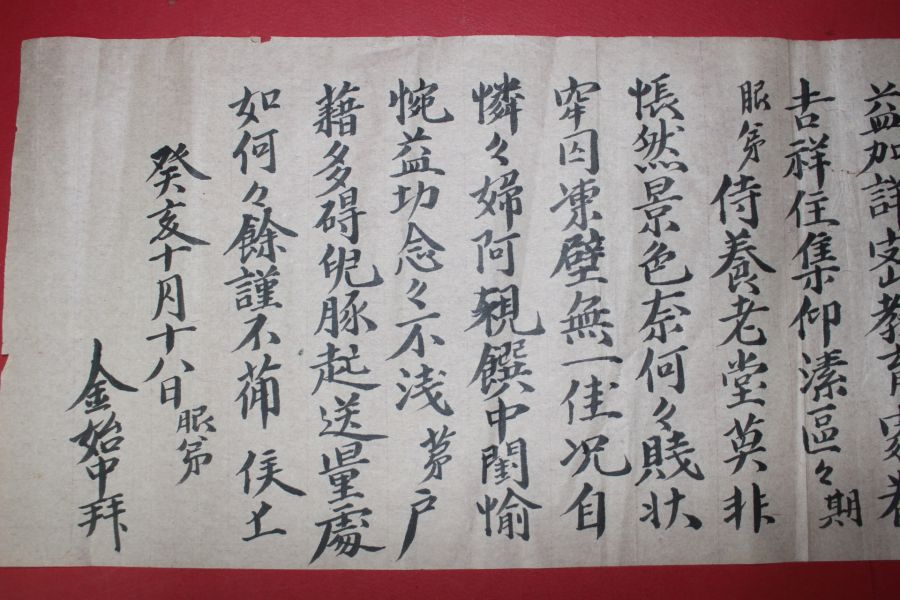 益加詳
教育
吉祥住集仰溸區々期
服弟侍養老堂莫非
悵然景色奈何々賤狀
窂囚凍壁無一佳況自
憐々婦阿親饌中閨愉
惋益切念々不浅茅戶
藉多碍皃豚起送量處
如何々餘謹不葡侯上
癸亥十月十八日服弟
金始中拜